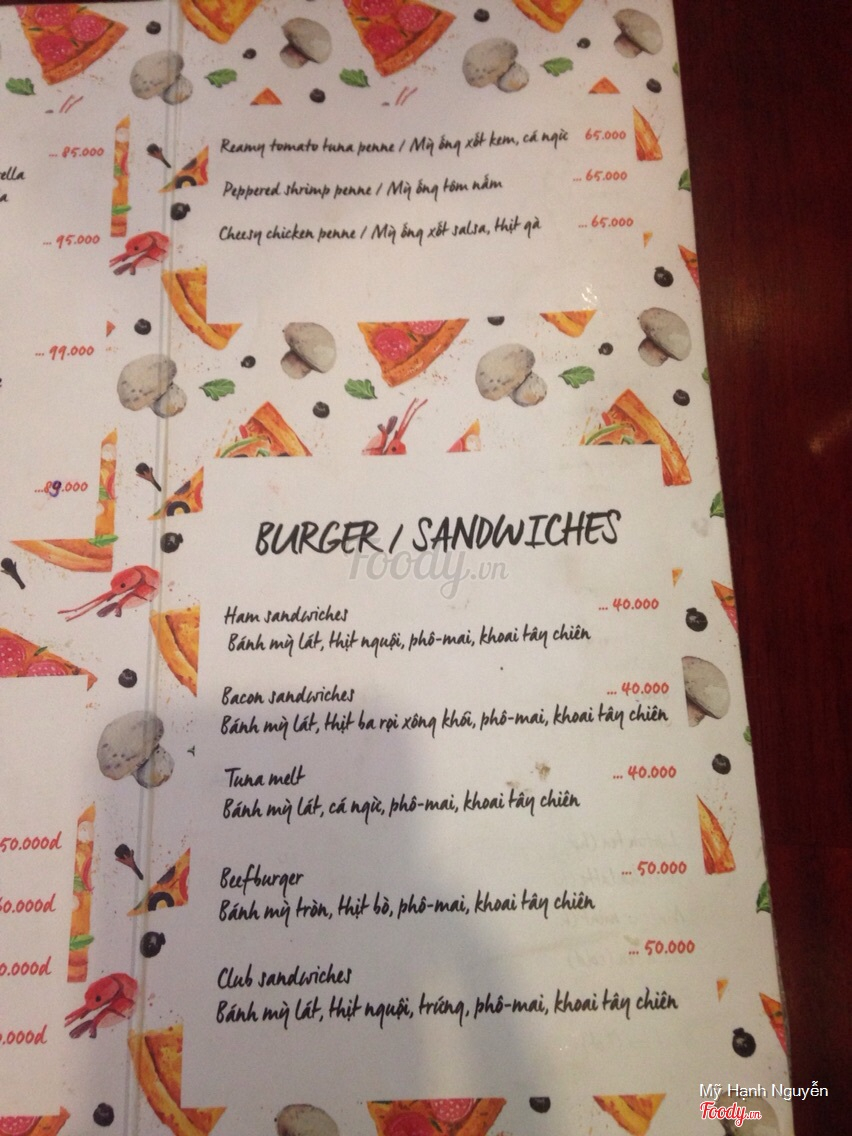 ... 85.000
ella
a
... 95.000
... 99.000
...89.000
50.000d
60.000d
0.000d
0.000d
Reamy tomato tuna penne / Mỳ ống xốt kem, cá ngừ 65.000
Peppered shrimp penne / Mỳ ống tôm nấm ... 65.000
Cheesy chicken penne / Mỳ ống xốt salsa, thịt gà ... 65.000
BURGER / SANDWICHES
Foody.vn
Ham sandwiches ... 40.000
Bánh mỳ lát, thịt nguội, phô-mai, khoai tây chiên
Bacon sandwiches ... 40.000
Bánh mỳ lát, thịt ba rọi xông khói, phô-mai, khoai tây chiên
Tuna melt ... 40.000
Bánh mỳ lát, cá ngừ, phô-mai, khoai tây chiên
Beefburger ... 50.000
Bánh mỳ tròn, thịt bò, phô-mai, khoai tây chiên
Club sandwiches ... 50.000
Bánh mỳ lát, thịt nguội, trứng, phô-mai, khoai tây chiên
Mỹ Hạnh Nguyễn
Foody.vn